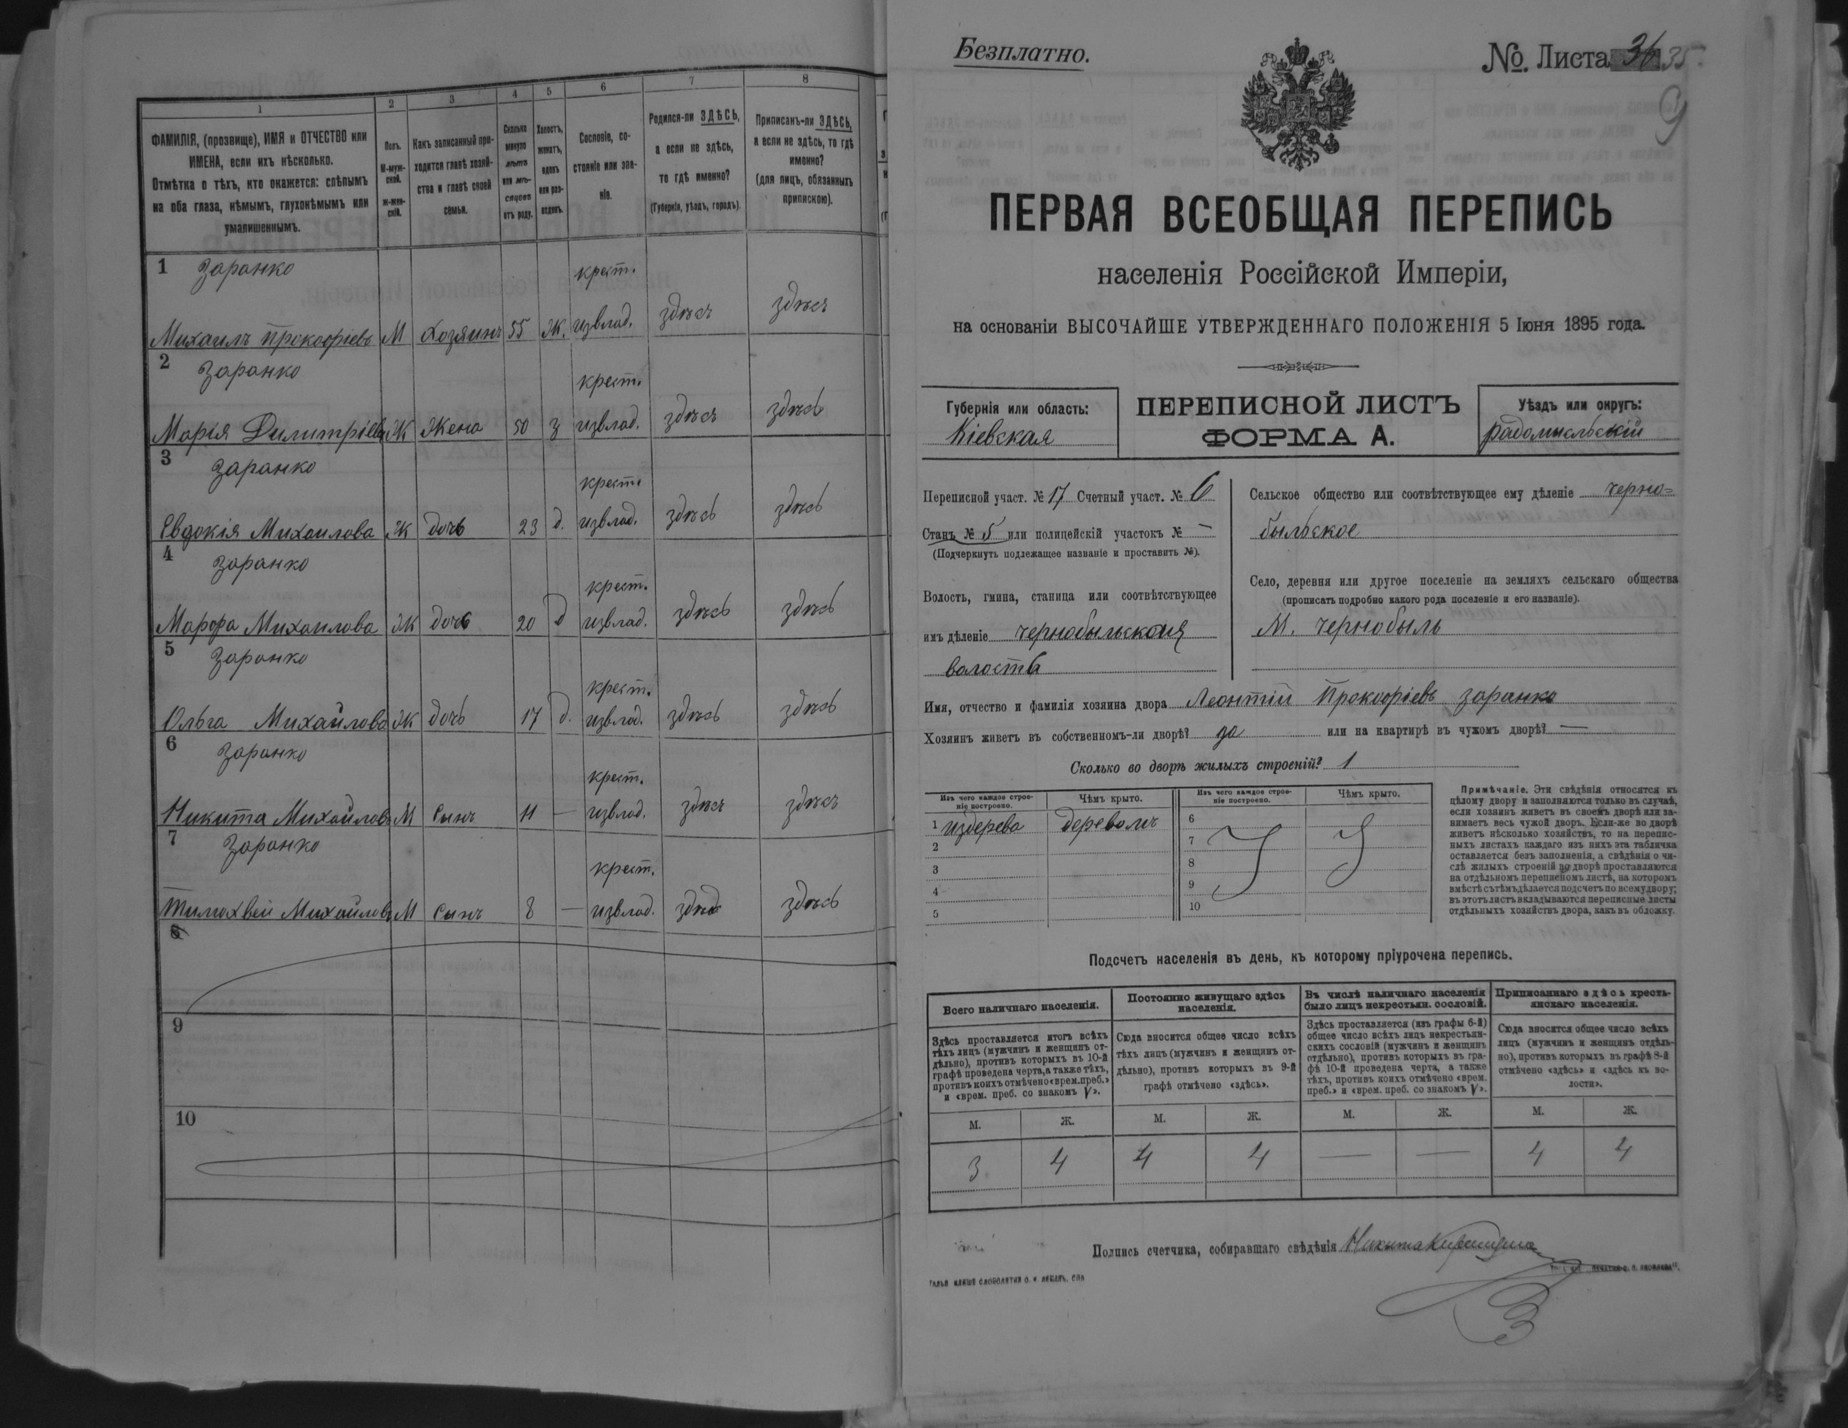 1
2
3
4
5
6
7
8
ФАМИЛІЯ, (прозвище), ИМЯ и ОТЧЕСТВО или
ИМЕНА, если ихъ нѣсколько.
Отмѣтка о тѣхъ, кто окажется: слѣпымъ
на оба глаза, нѣмымъ, глухонѣмымъ или
умалишеннымъ.
Полъ.
М-муж-
ской.
ж-жен-
скій.
Какъ записанный при-
ходится главѣ хозяй-
ства и главѣ своей
семьи.
Сколько
минуло
лѣтъ
или мѣ-
сяцевъ
отъ роду.
Холостъ,
женатъ,
вдовъ
или раз-
веденъ.
Сословіе, со-
стояніе или зва-
ніе.
Родился-ли ЗДѢСЬ,
а если не здѣсь,
то гдѣ именно?
(Губернія, уѣздъ, городъ).
Приписанъ-ли ЗДѢСЬ,
а если не здѣсь, то гдѣ
именно?
(для лицъ, обязанныхъ
припискою).
1 Заранко крест.
Михаилъ Прокофіевъ М Хозяинъ 55 Ж. извлад. здѣсь здѣсь
2 Заранко крест.
Марья Димитріева Ж Жена 50 З извлад. здѣсь здѣсь
3 Заранко крест.
Евдокія Михаилова Ж дочь 23 д. извлад. здѣсь здѣсь
4 Заранко крест.
Михаилова Ж дочь 20 д извлад. здѣсь здѣсь
5 Заранко крест.
Ольга Михайлова Ж дочь 17 д. извлад. здѣсь здѣсь
6 Заранко крест.
Никита Михайловъ М Сынъ 11 — извлад. здѣсь здѣсь
7 Заранко крест.
Тимохвей Михайловъ М Сынъ 8 — извлад. здѣсь здѣсь
8
9
10
Безплатно.
№. Листа 36 35
ПЕРВАЯ ВСЕОБЩАЯ ПЕРЕПИСЬ
населенія Россійской Имперіи,
на основаніи ВЫСОЧАЙШЕ УТВЕРЖДЕННАГО ПОЛОЖЕНІЯ 5 Іюня 1895 года.
Губернія или область:
Кіевская
ПЕРЕПИСНОЙ ЛИСТЪ
ФОРМА А.
Уѣздъ или округъ:
Радомысльскій
Переписной участ. № 17 Счетный участ. № 6
Станъ № 5 или полицейскій участокъ № —
(Подчеркнуть подлежащее названіе и проставить №).
Волость, гмина, станица или соотвѣтствующее
имъ дѣленіе Чернобыльская
волость
Сельское общество или соотвѣтствующее ему дѣленіе Черно=
быльское
Село, деревня или другое поселеніе на земляхъ сельскаго общества
(прописать подробно какого рода поселеніе и его названіе).
М. Чернобыль
Имя, отчество и фамилія хозяина двора Леонтій Прокофіевъ Заранко
Хозяинъ живетъ въ собственномъ-ли дворѣ? да или на квартирѣ въ чужомъ дворѣ? —
Сколько во дворѣ жилыхъ строеній? 1
Изъ чего каждое строе-
ніе построено.
Чѣмъ крыто.
Изъ чего каждое строе-
ніе построено.
Чѣмъ крыто.
1 издерева деревомъ
2
3
4
5
6
7
8
9
10
Примѣчаніе. Эти свѣдѣнія относятся къ
цѣлому двору и заполняются только въ случаѣ,
если хозяинъ живетъ въ своемъ дворѣ или за-
нимаетъ весь чужой дворъ. Если-же во дворѣ
живетъ нѣсколько хозяйствъ, то на перепис-
ныхъ листахъ каждаго изъ нихъ эта табличка
оставляется безъ заполненія, а свѣдѣнія о чи-
слѣ жилыхъ строеній во дворѣ проставляются
на отдѣльномъ переписномъ листѣ, на которомъ
вмѣстѣ съ тѣмъ дѣлается подсчетъ по всему двору;
въ этотъ листъ вкладываются переписные листы
отдѣльныхъ хозяйствъ двора, какъ въ обложку.
Подсчетъ населенія въ день, къ которому пріурочена перепись.
Всего наличнаго населенія.
Здѣсь проставляется итогъ всѣхъ
тѣхъ лицъ (мужчинъ и женщинъ от-
дѣльно), противъ которыхъ въ 10-й
графѣ проведена черта, а также тѣхъ,
противъ коихъ отмѣчено «врем. преб.»
и «врем. преб. со знакомъ V».
Постоянно живущаго здѣсь
населенія.
Сюда вносится общее число всѣхъ
тѣхъ лицъ (мужчинъ и женщинъ от-
дѣльно), противъ которыхъ въ 9-й
графѣ отмѣчено «здѣсь».
Въ числѣ наличнаго населенія
было лицъ некрестьян. сословій.
Здѣсь проставляется (изъ графы 6-й)
общее число всѣхъ лицъ некрестьян-
скихъ сословій (мужчинъ и женщинъ
отдѣльно), противъ которыхъ въ гра-
фѣ 10-й проведена черта, а также
тѣхъ, противъ коихъ отмѣчено «врем.
преб.» и «врем. преб. со знакомъ V».
Приписаннаго здѣсь кресть-
янскаго населенія.
Сюда вносится общее число всѣхъ
лицъ (мужчинъ и женщинъ отдѣль-
но), противъ которыхъ въ графѣ 8-й
отмѣчено «здѣсь» и «здѣсь въ во-
лости».
М. Ж. М. Ж. М. Ж. М. Ж.
3 4 4 4 — — 4 4
Подпись счетчика, собиравшаго свѣдѣнія Никита